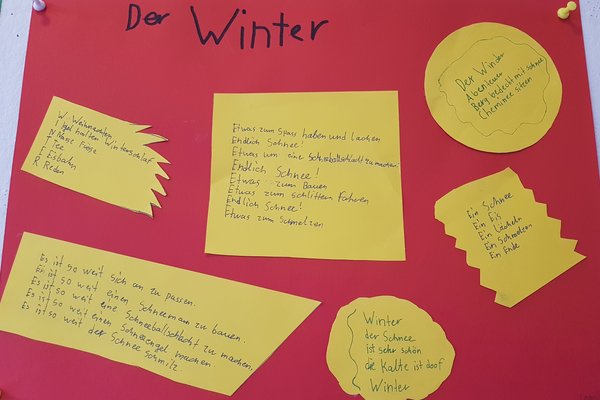 Der Winter
W Weihnachten
I gel halten Winterschlaf
N Nasse Füsse
T Tee
E Eisbahn
R Roden
Etwas zum Spass haben und lachen
Endlich Schnee!
Etwas um eine Schneeballschlacht zu machen.
Endlich Schnee!
Etwas zum Bauen
Etwas zum schlitten Fahren
Endlich Schnee!
Etwas zum Schmelzen
Der Winter
Abenteuer
Berg bedeckt mit schnee
Cheminee sitzen
Ein Schnee
Ein Eis
Ein Lächeln
Ein Schmelzen
Ein Ende
Es ist so weit sich an zu passen.
Es ist so weit einen Schneemann zu bauen.
Es ist so weit eine Schneeballschlacht zu machen.
Es ist so weit einen Schneeengel machen
Es ist so weit der Schnee schmilz
Winter
der Schnee
ist sehr schön
die Kalte ist doof
Winter